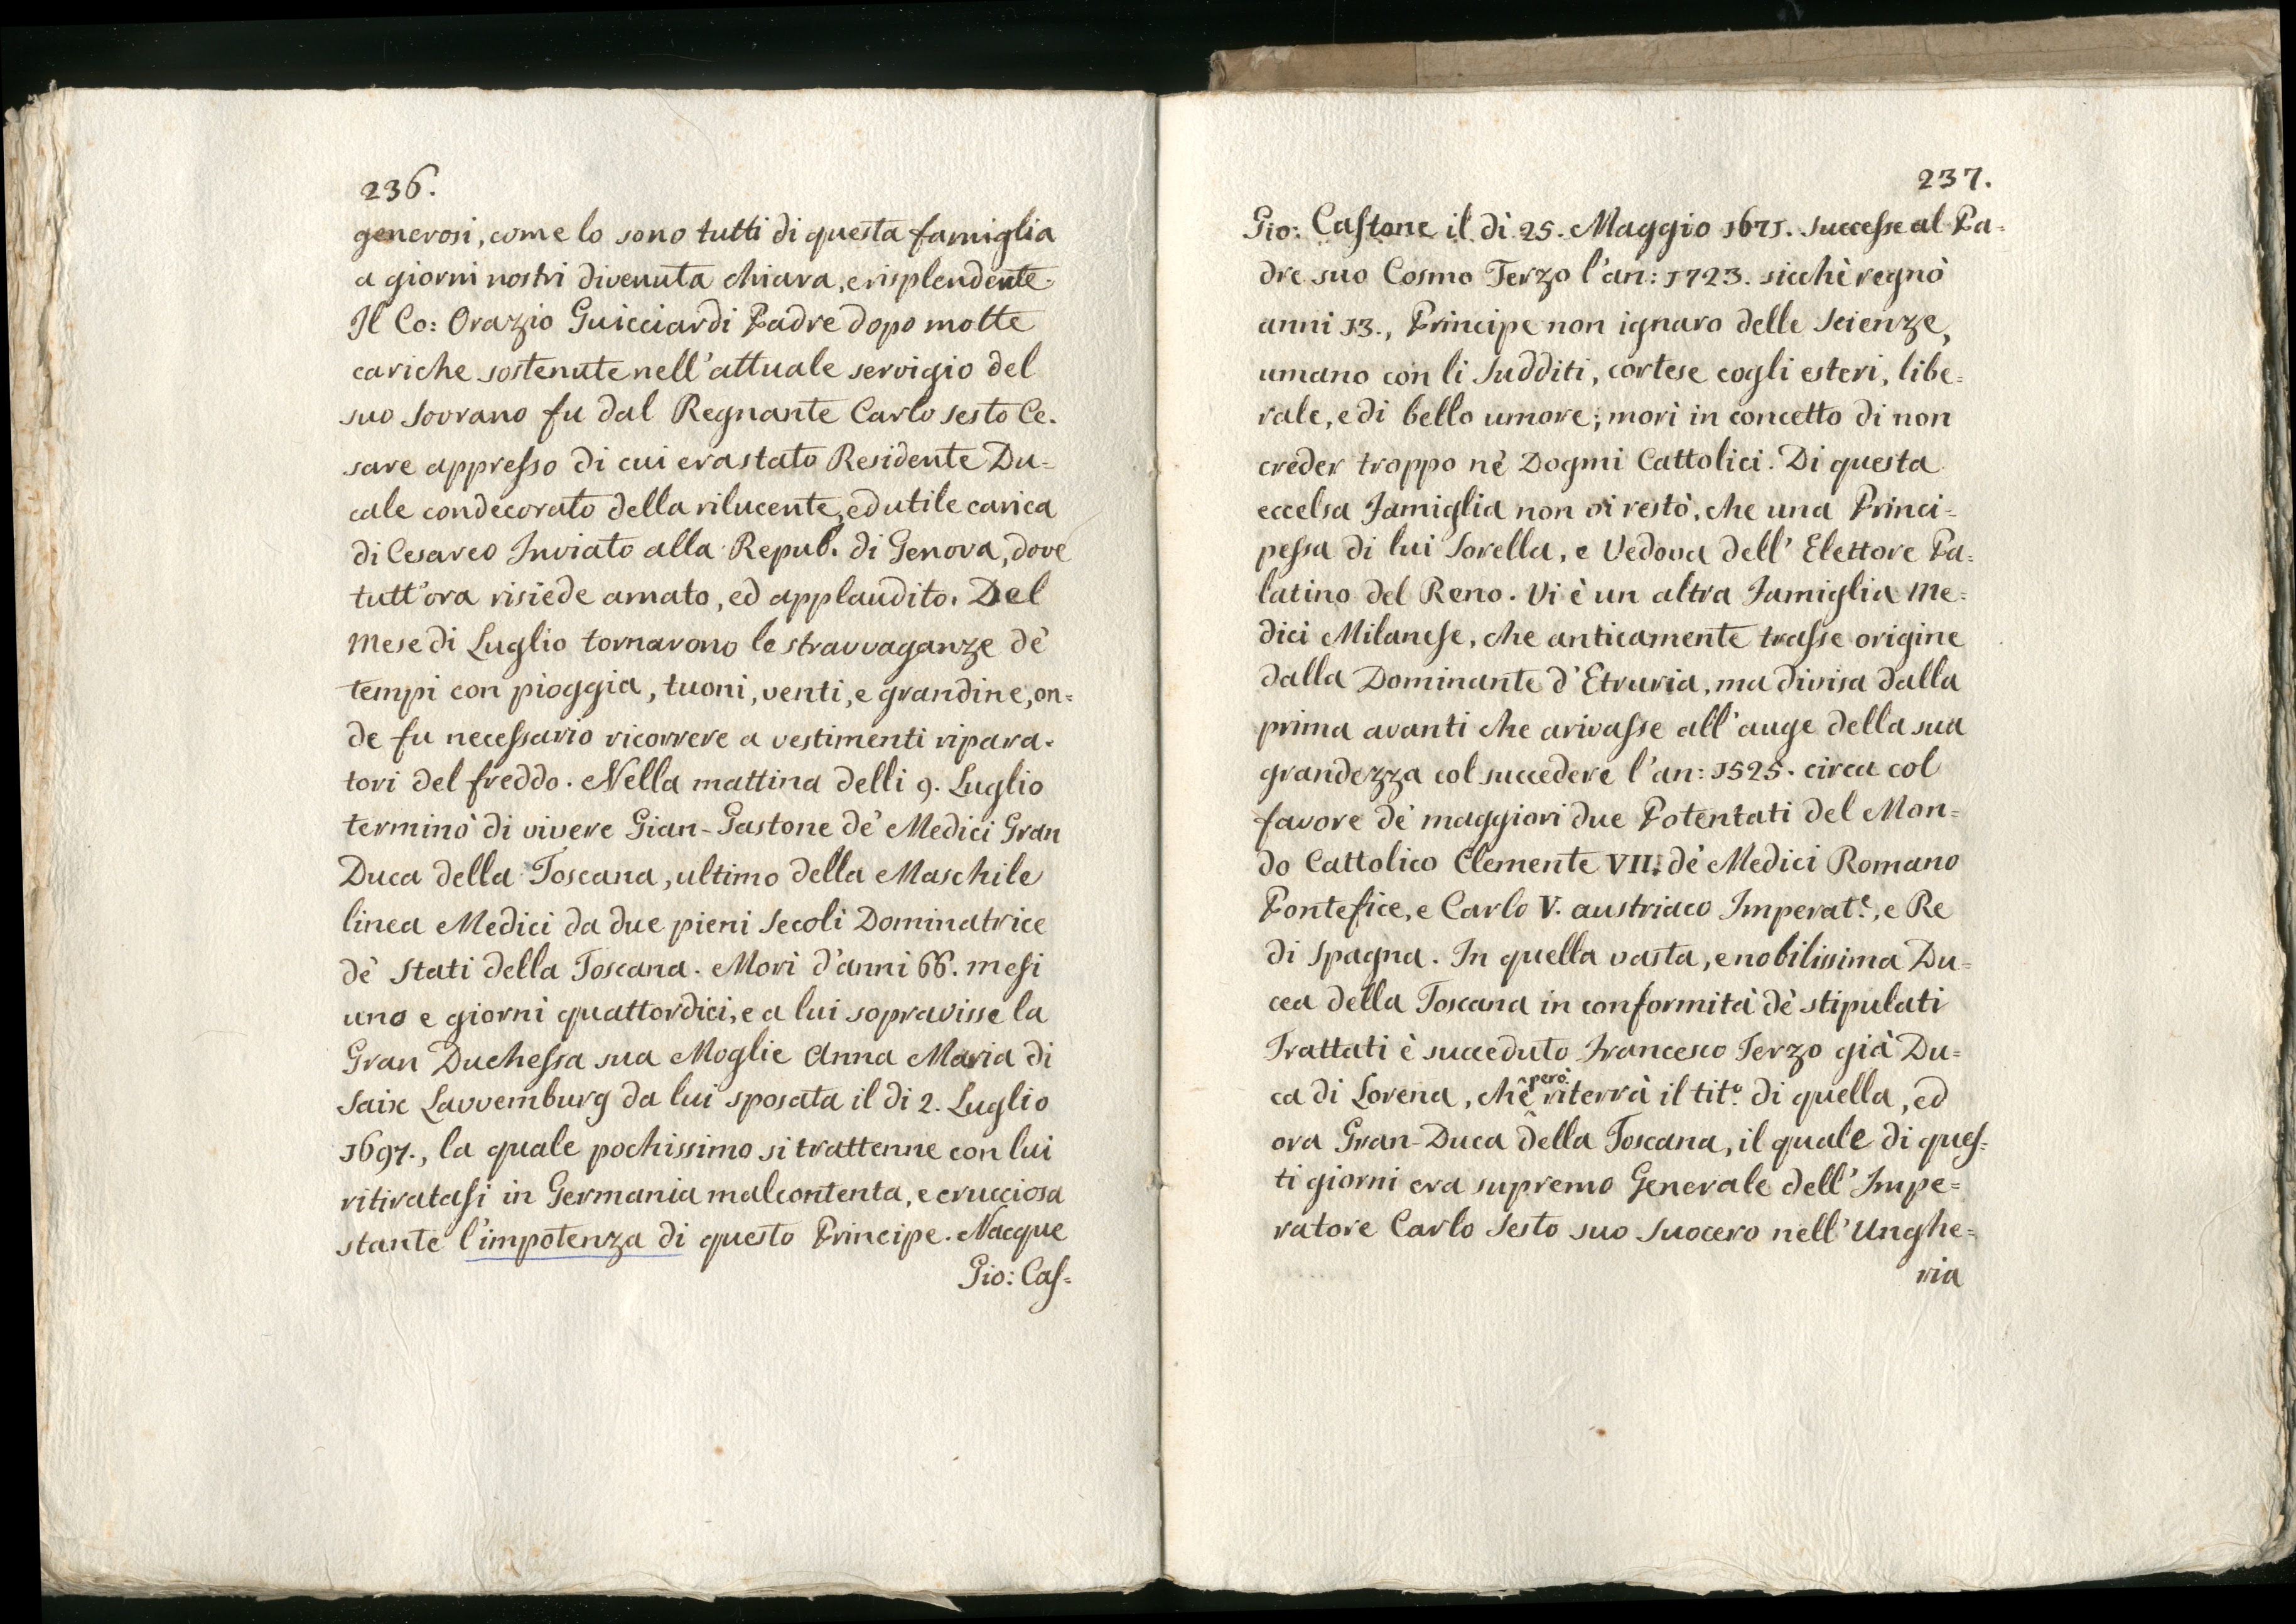 236.
generosi, come lo sono tutti di questa famiglia
a giorni nostri divenuta chiara, e risplendente.
Il Co: Orazio Guicciardi Padre dopo molte
cariche sostenute nell'attuale servigio del
suo Sovrano fu dal Regnante Carlo sesto Ce-
sare appresso di cui era stato Residente Du=
cale condecorato della rilucente, ed utile carica
di Cesareo Inviato alla Repub. di Genova, dove
tutt'ora risiede amato, ed applaudito. Del
Mese di Luglio tornarono le stravvaganze de'
tempi con pioggia, tuoni, venti, e grandine, on=
de fu necessario ricorrere a vestimenti ripara-
tori del freddo. Nella mattina delli 9. Luglio
terminò di vivere Gian-Gastone de' Medici Gran
Duca della Toscana, ultimo della Maschile
linea Medici da due pieni Secoli Dominatrice
de' Stati della Toscana. Morì d'anni 66. mesi
uno e giorni quattordici, e a lui sopravisse la
Gran Duchessa sua Moglie Anna Maria di
Saix Lavvemburg da lui sposata il di 2. Luglio
1697., la quale pochissimo si trattenne con lui
ritiratasi in Germania malcontenta, e crucciosa
stante l'impotenza di questo Principe. Nacque
Gio: Cas=
237.
Gio: Castone il dì 25. Maggio 1671. successe al Pa=
dre suo Cosmo Terzo l'an: 1723. sicchè regnò
anni 13., Principe non ignaro delle Scienze,
umano con li Sudditi, cortese cogli esteri, libe=
rale, e di bello umore; morì in concetto di non
creder troppo ne' Dogmi Cattolici. Di questa
eccelsa Famiglia non vi restò, che una Princi=
pessa di lui Sorella, e Vedova dell' Elettore Pa=
latino del Reno. Vi è un altra Famiglia Me=
dici Milanese, che anticamente trasse origine
dalla Dominante d'Etruria, ma divisa dalla
prima avanti che arivasse all'auge della sua
grandezza col succedere l'an: 1525. circa col
favore de' maggiori due Potentati del Mon=
do Cattolico Clemente VII. de' Medici Romano
Pontefice, e Carlo V. austriaco Imperat.e, e Re
di Spagna. In quella vasta, e nobilissima Du=
cea della Toscana in conformità de' stipulati
Trattati è succeduto Francesco Terzo già Du=
ca di Lorena, che però riterrà il tit.o di quella, ed
ora Gran-Duca della Toscana, il quale di ques=
ti giorni era supremo Generale dell' Impe=
ratore Carlo Sesto suo Suocero nell'Unghe=
ria